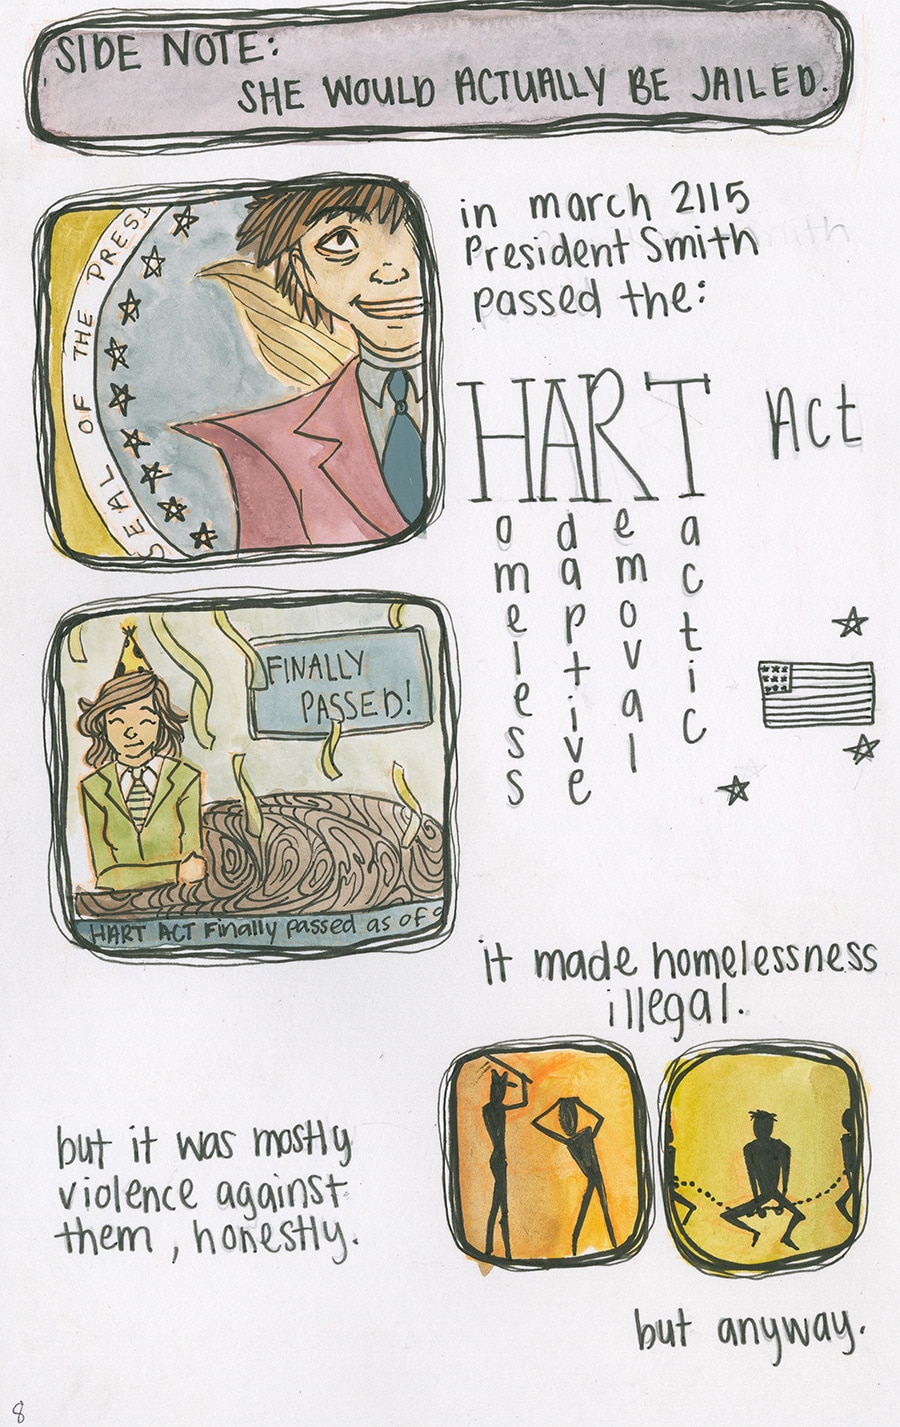 SIDE NOTE:
SHE WOULD ACTUALLY BE JAILED.
SEAL OF THE PRESI
in march 2115
President Smith
passed the:
HART Act
omeless
daptive
emoval
actic
FINALLY
PASSED!
HART ACT Finally passed as of
it made homelessness
illegal.
but it was mostly
violence against
them, honestly.
but anyway.
8